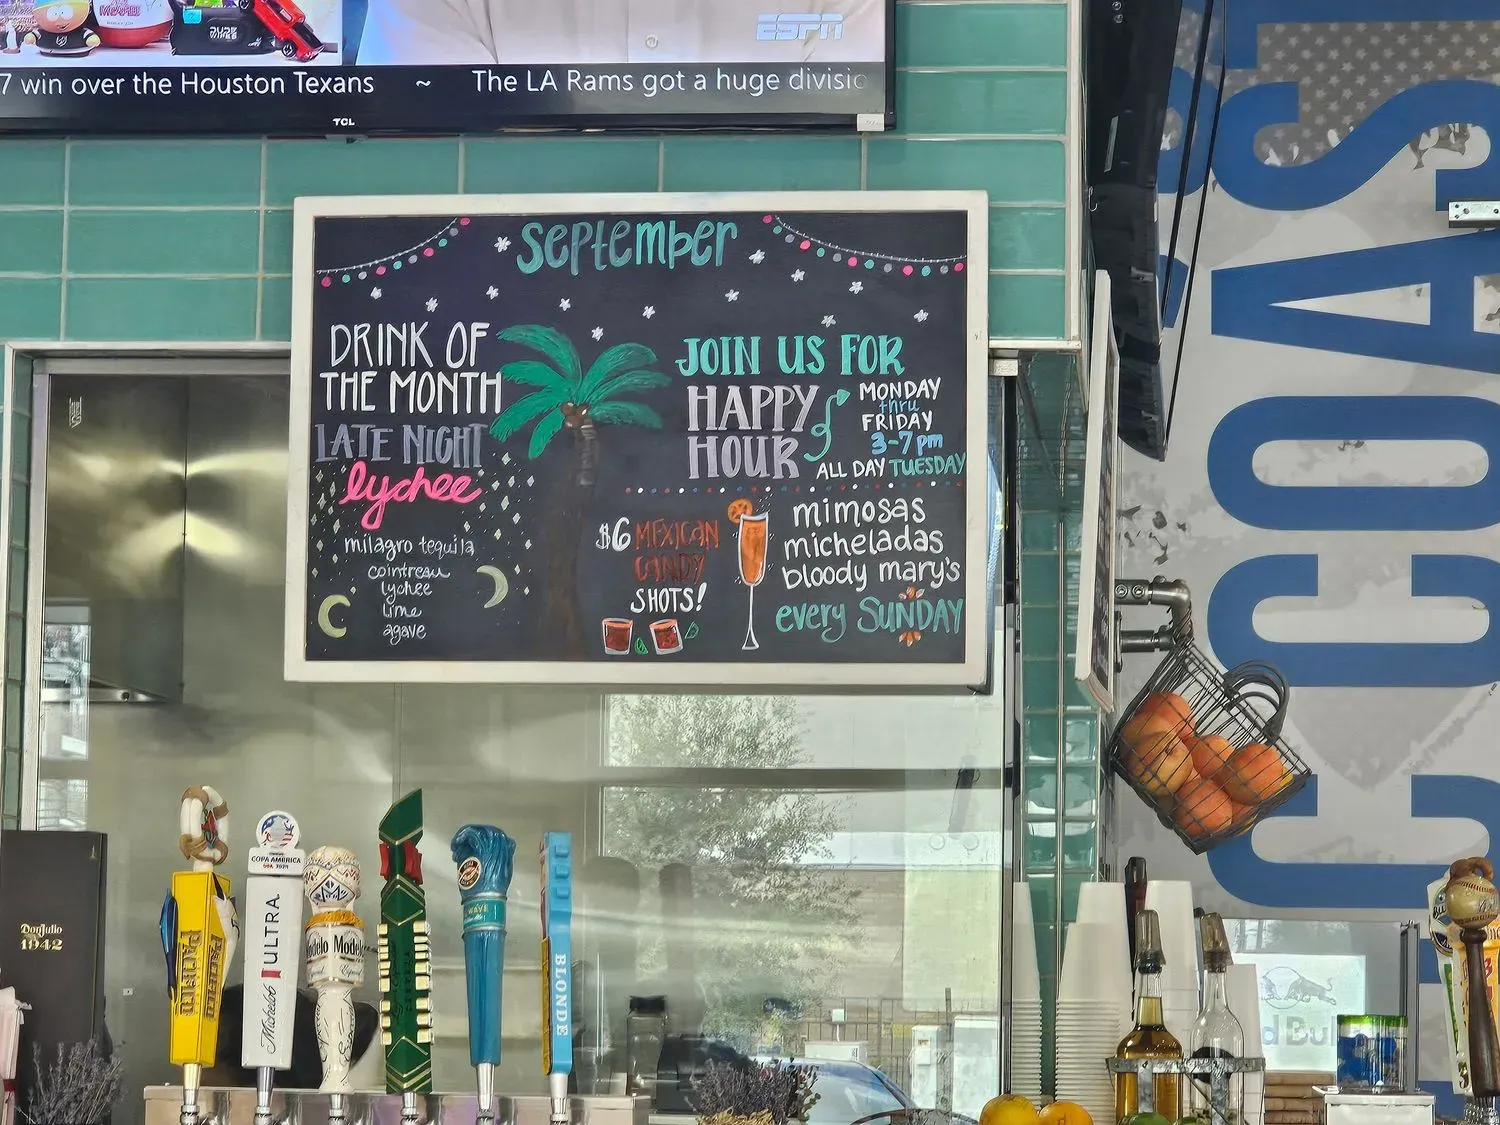 DUDE
WIPES
ESPN
7 win over the Houston Texans ~ The LA Rams got a huge divisio
TCL
September
DRINK OF
THE MONTH
LATE NIGHT
lychee
milagro tequila
cointreau
lychee
lime
agave
JOIN US FOR
HAPPY
HOUR
MONDAY
thru
FRIDAY
3-7pm
ALL DAY TUESDAY
$6 MEXICAN
CANDY
SHOTS!
mimosas
micheladas
bloody mary's
every SUNDAY
COAST
DonJulio
1942
PACIFICO
COPA AMERICA
USA 2024
Michelob ULTRA
Modelo
Especial
WAVE
BLONDE
d Bull